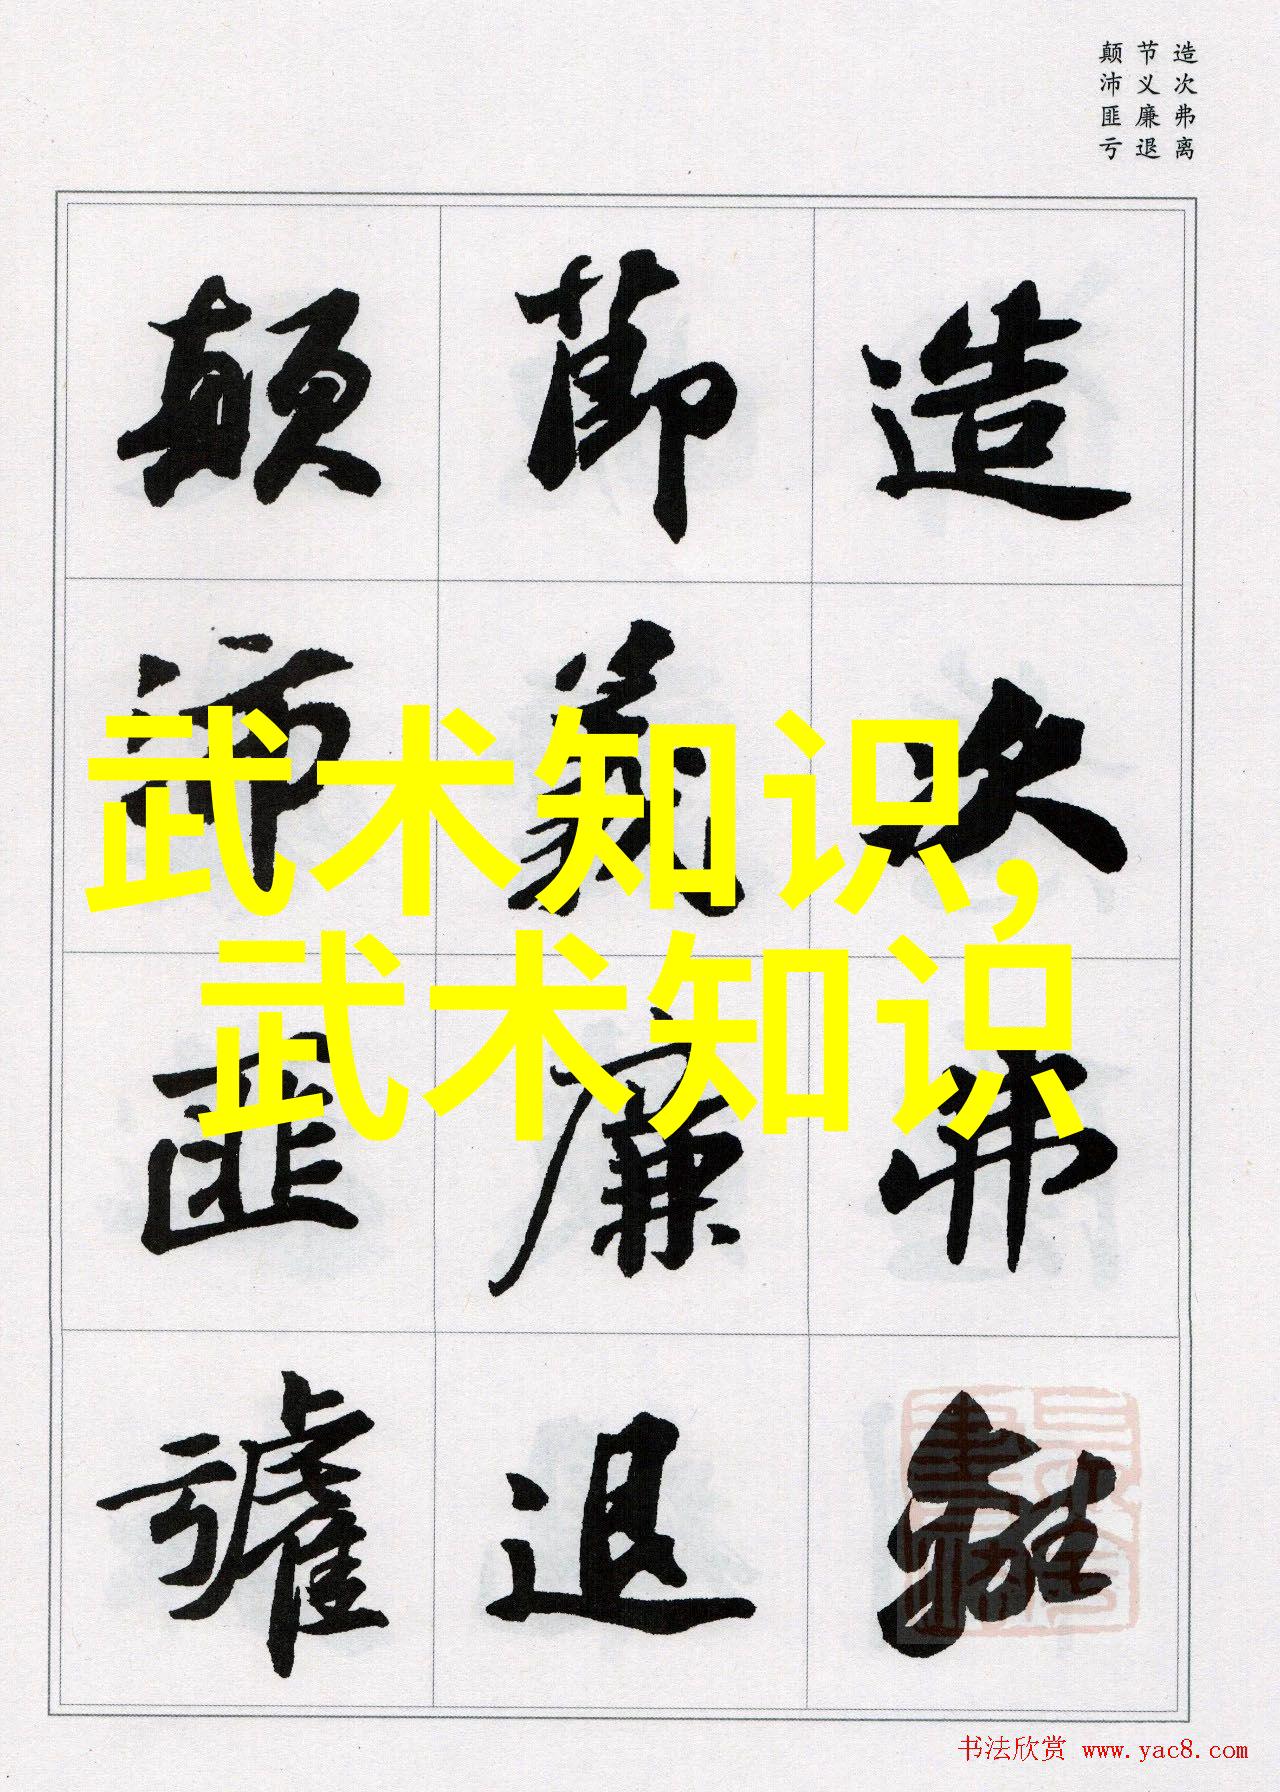 造次弗离
节义廉退
颠沛匪亏
造次弗離
節義廉退
顛沛匪虧
武术知识,
武术知识
书法欣赏 www.yac8.com